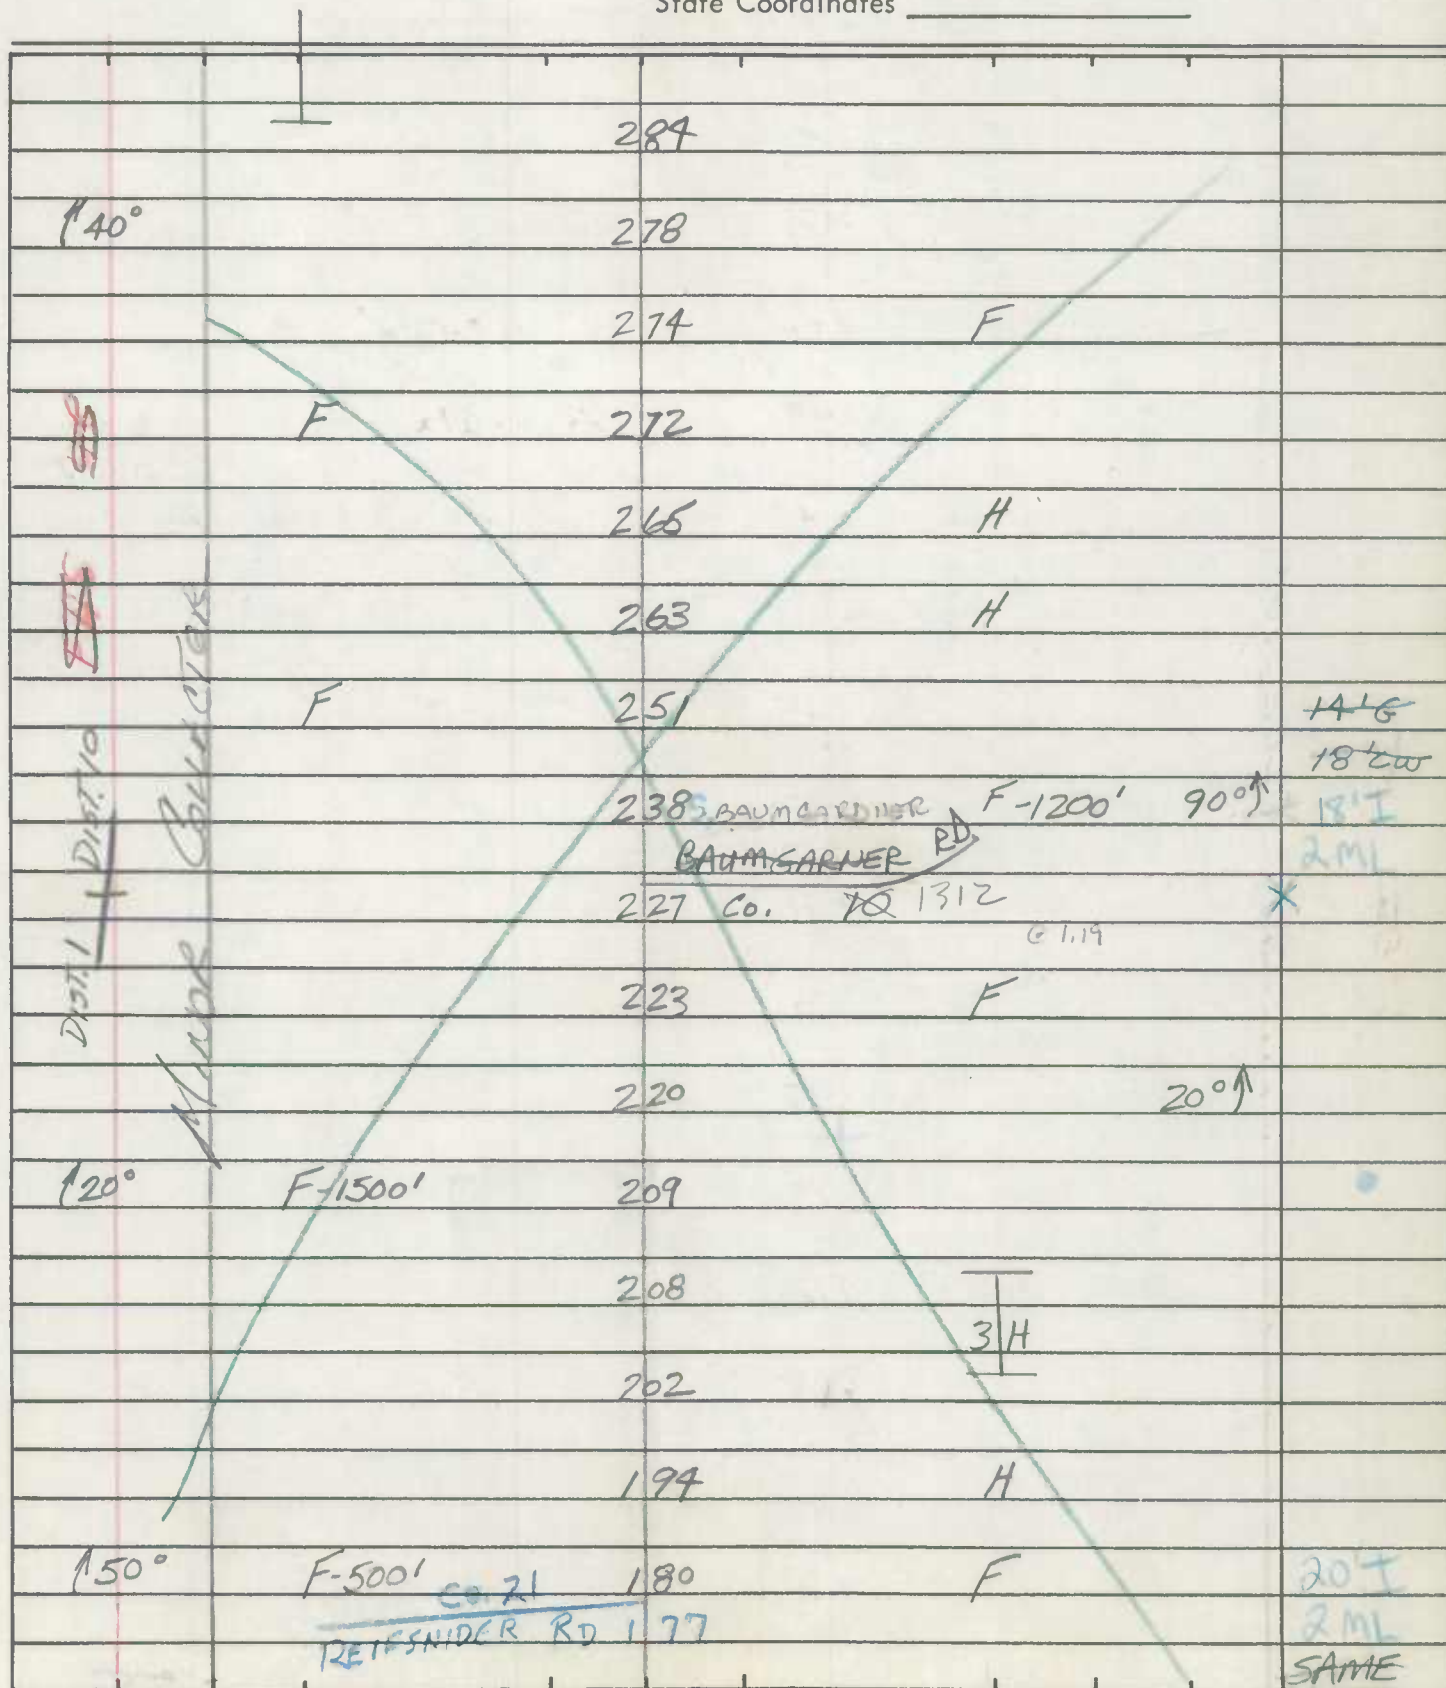 State Coordinates
284
↑40° 278
274 F
F 272
265 H
263 H
F 251 14'G
18'
238 S. BAUMGARDNER F-1200' 90°↑ 18'I
BAUMGARNER RD 2 ML
227 Co. 1312 X
1.19
223 F
220 20°↑
↑20° F-1500' 209
208
3 H
202
194 H
↑50° F-500' 180 F 20'I
Co. 21 2 ML
REIFSNIDER RD 177
SAME
DIST. 1 DIST. 10
MINOR COLLECTOR